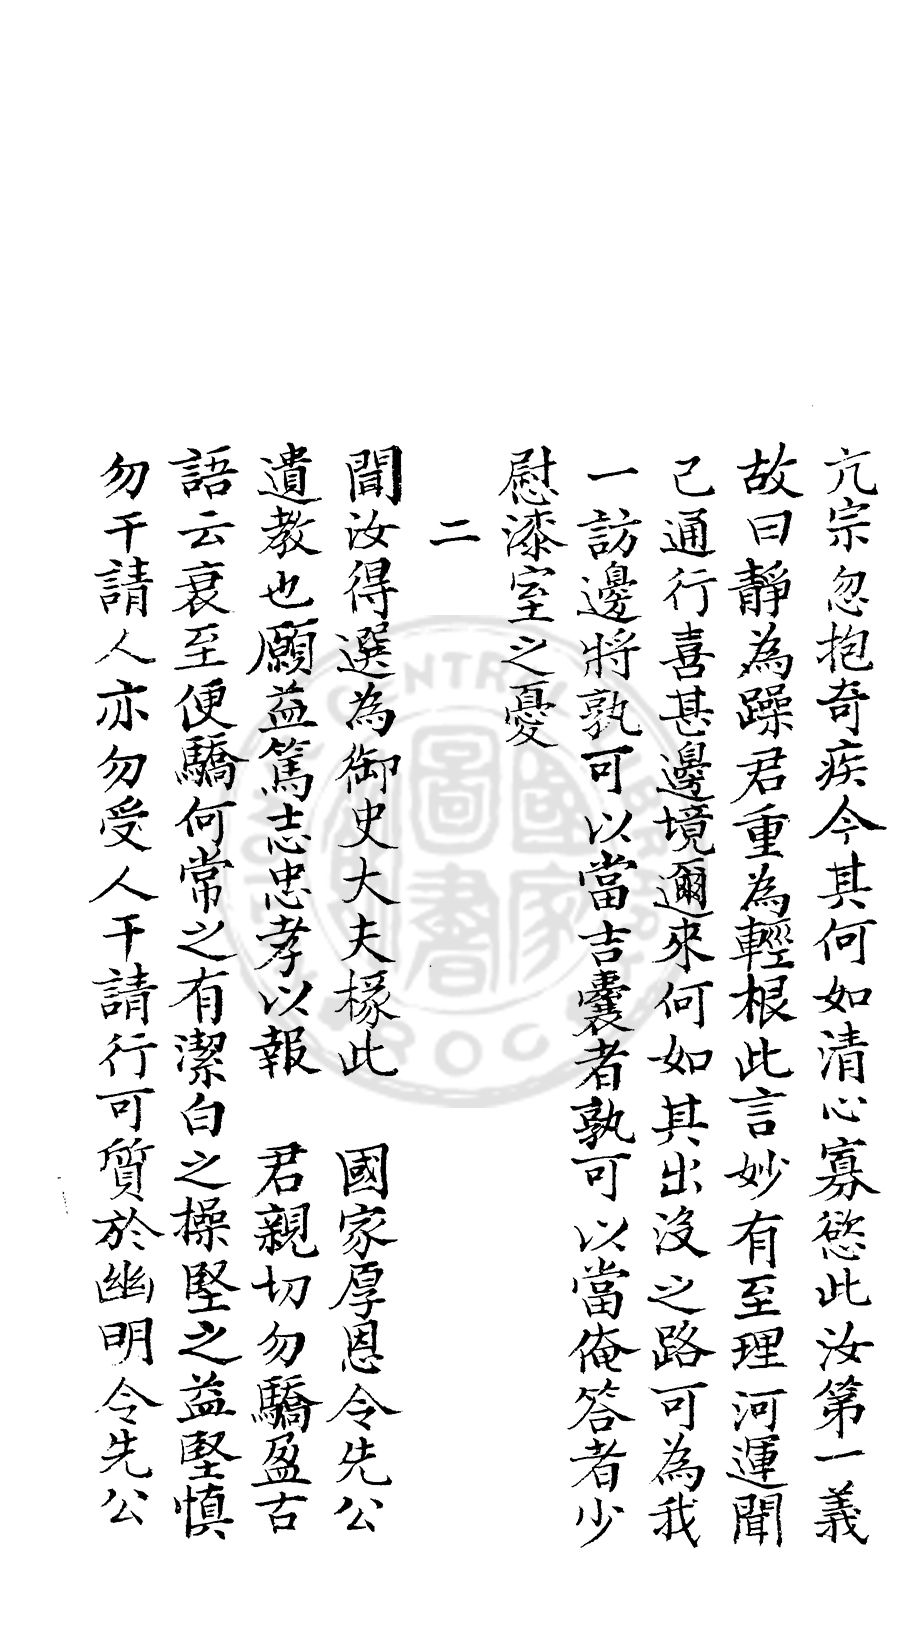 亢宗忽抱奇疾今其何如清心寡慾此汝第一義
故曰靜為躁君重為輕根此言妙有至理河運聞
已通行喜甚邊境邇來何如其出沒之路可為我
一訪邊將孰可以當吉囊者孰可以當俺答者少
慰漆室之憂
二
聞汝得選為御史大夫椽此 國家厚恩令先公
遺教也願益篤志忠孝以報 君親切勿驕盈古
語云衰至便驕何常之有潔白之操堅之益堅慎
勿干請人亦勿受人干請行可質於幽明令先公